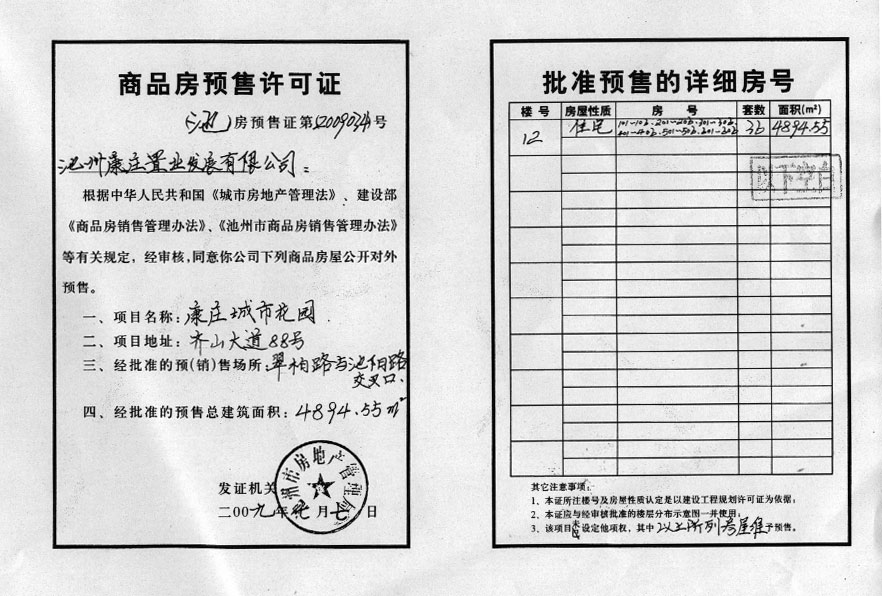 商品房预售许可证
(池)房预售证第2009034号
池州康庄置业发展有限公司：
根据中华人民共和国《城市房地产管理法》、建设部
《商品房销售管理办法》、《池州市商品房销售管理办法》
等有关规定，经审核，同意你公司下列商品房屋公开对外
预售。
一、项目名称：康庄城市花园
二、项目地址：齐山大道88号
三、经批准的预(销)售场所：翠柏路与池阳路
交叉口、
四、经批准的预售总建筑面积：4894.55m²
池州市房地产管理局
发证机关
二00九年七月七日
批准预售的详细房号
楼号 房屋性质 房号 套数 面积(m²)
12 住宅 101-106.201-206.301-306. 36 4894.55
401-406.501-506.601-606
以下空白
其它注意事项：
1、本证所注楼号及房屋性质认定是以建设工程规划许可证为依据；
2、本证应与经审核批准的楼层分布示意图一并使用；
3、该项目未设定他项权，其中以上所列房屋准予预售。